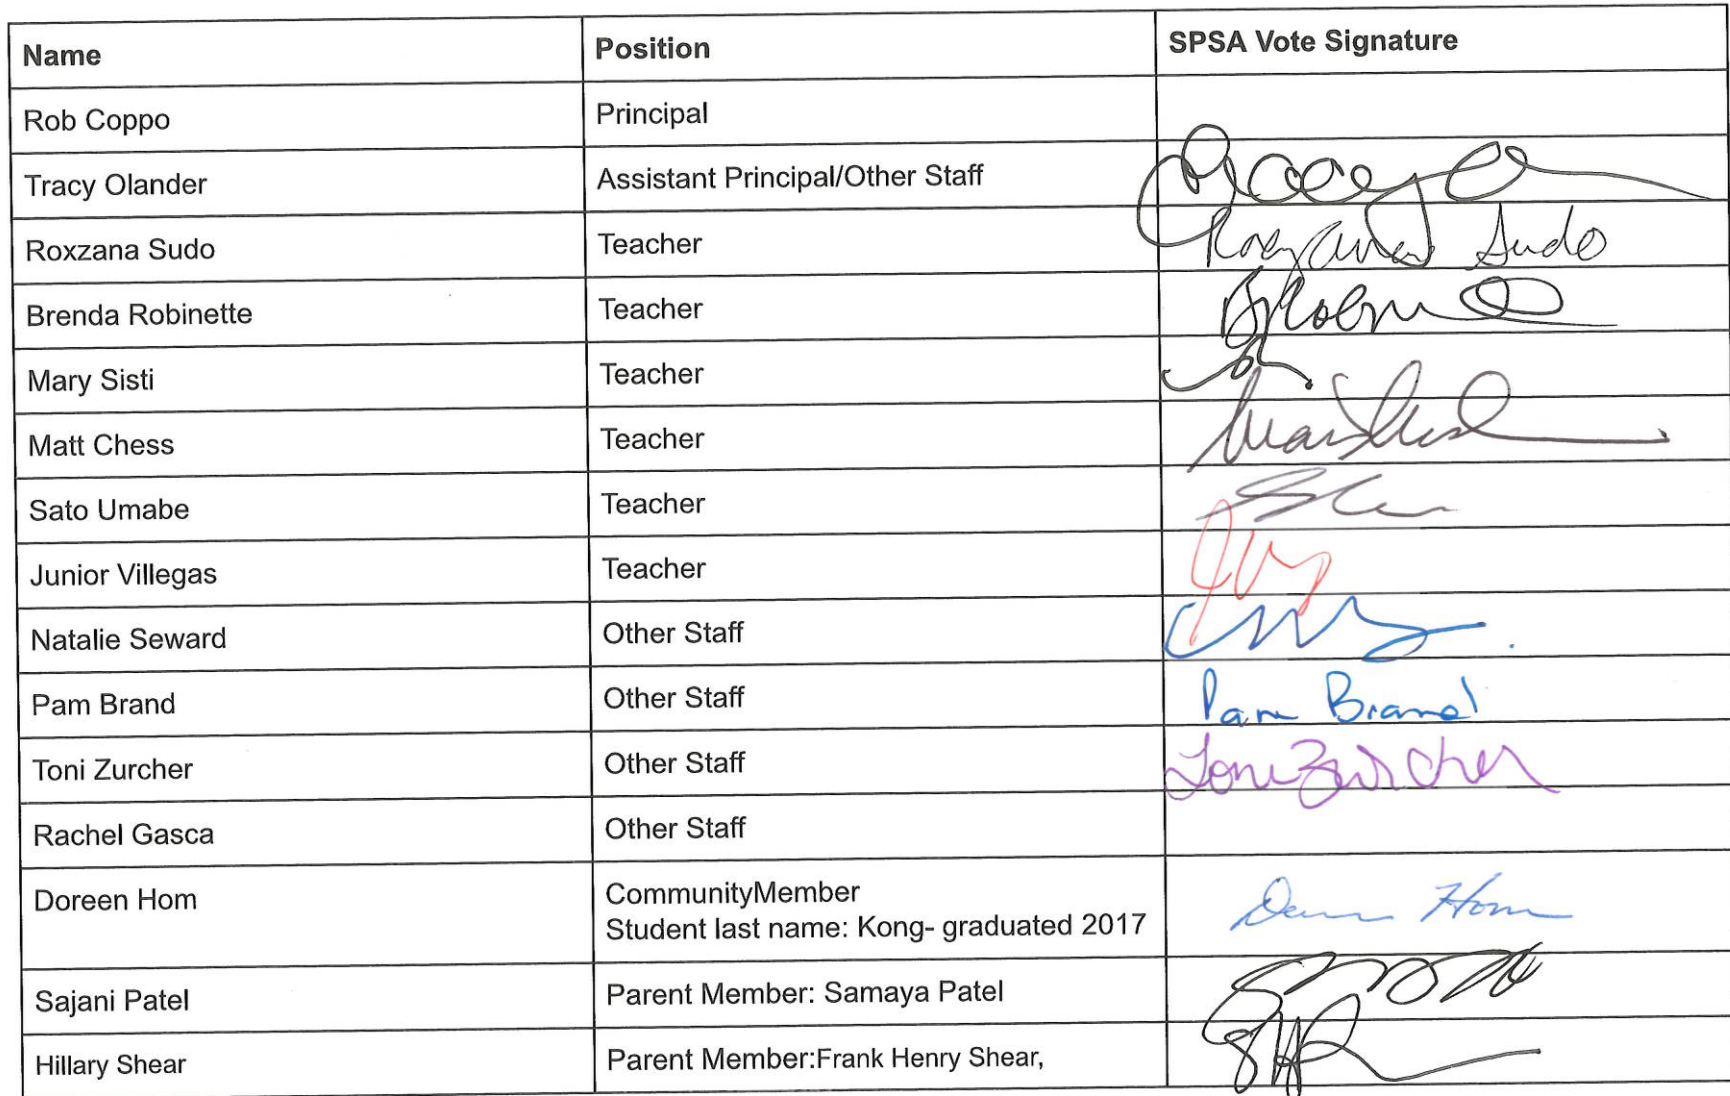 Name Position SPSA Vote Signature
Rob Coppo Principal
Tracy Olander Assistant Principal/Other Staff
Roxzana Sudo Teacher Roxzana Sudo
Brenda Robinette Teacher
Mary Sisti Teacher
Matt Chess Teacher
Sato Umabe Teacher
Junior Villegas Teacher
Natalie Seward Other Staff
Pam Brand Other Staff Pam Brand
Toni Zurcher Other Staff Toni Zurcher
Rachel Gasca Other Staff
Doreen Hom CommunityMember
Student last name: Kong- graduated 2017 Hom
Sajani Patel Parent Member: Samaya Patel
Hillary Shear Parent Member:Frank Henry Shear,